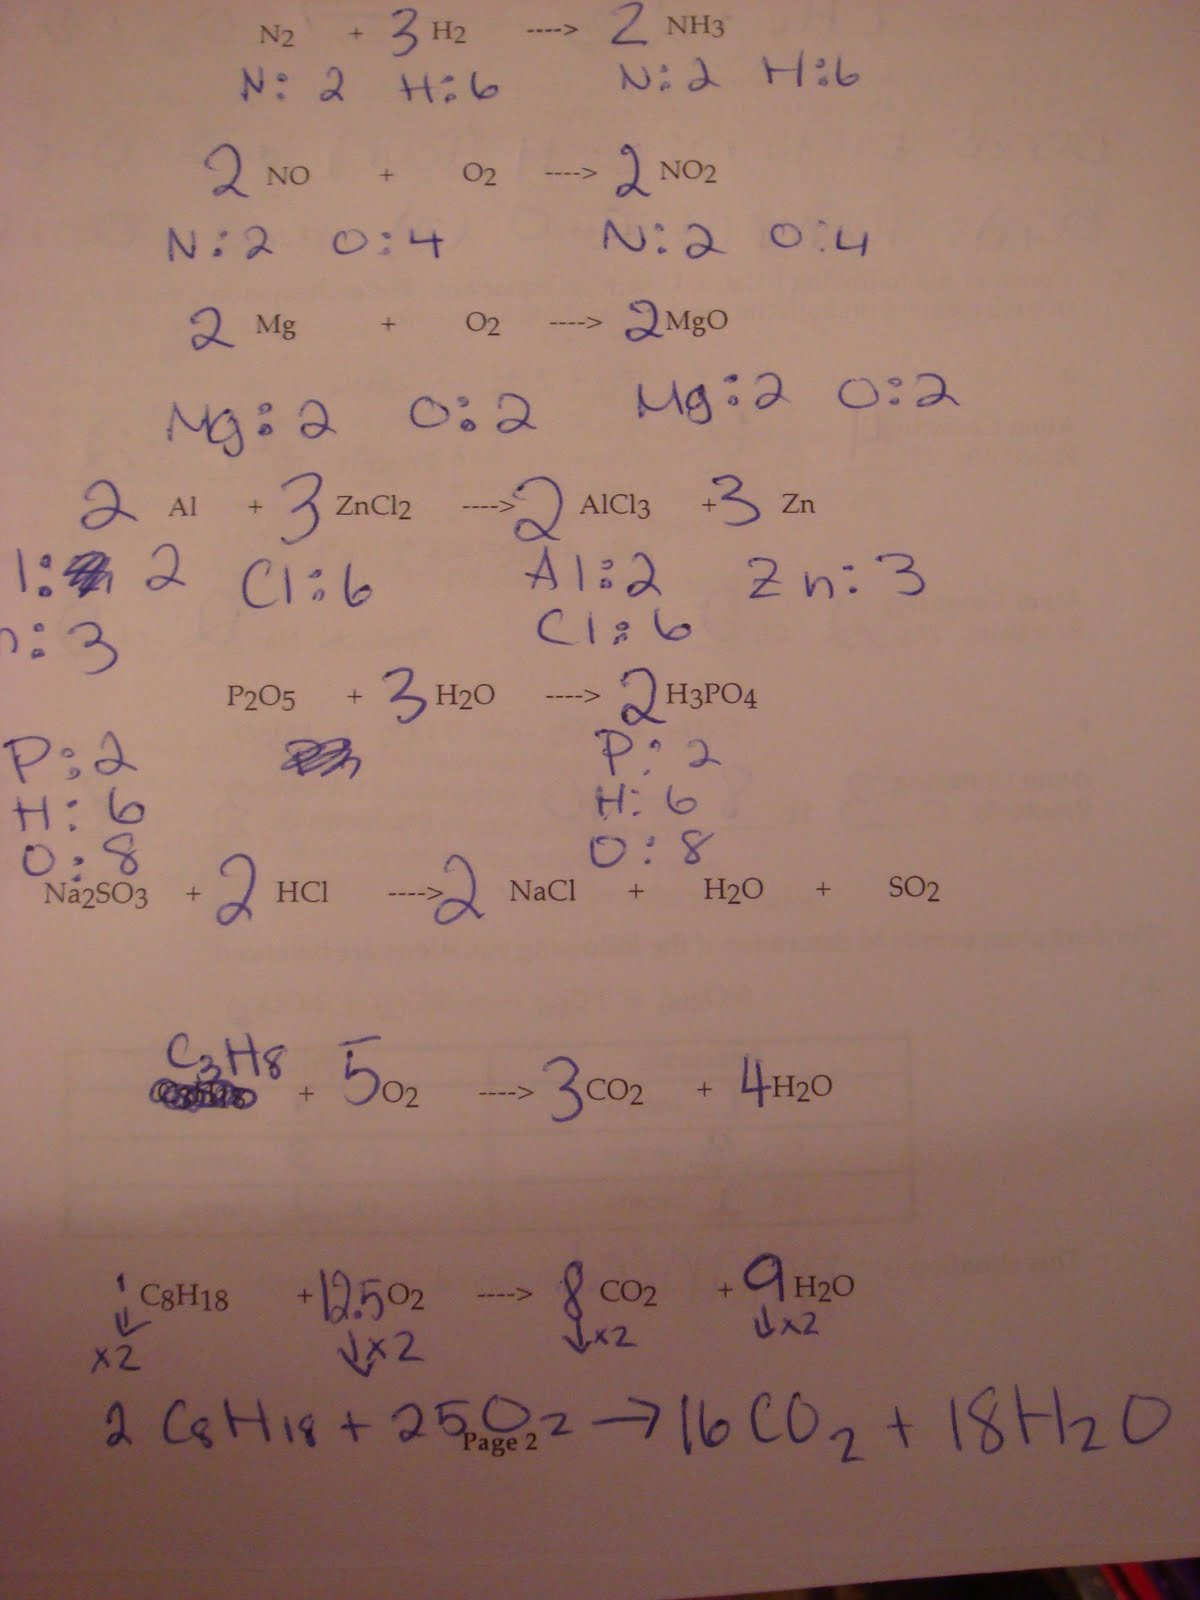 N2 + 3 H2 ----> 2 NH3
N: 2 H:6 N:2 H:6
2 NO + O2 ----> 2 NO2
N:2 O:4 N:2 O:4
2 Mg + O2 ----> 2 MgO
Mg:2 O:2 Mg:2 O:2
2 Al + 3 ZnCl2 ----> 2 AlCl3 +3 Zn
l: 2 Cl:6 Al:2 Zn:3
n:3 Cl:6
P2O5 + 3 H2O ----> 2 H3PO4
P:2 P:2
H:6 H:6
O:8 O:8
Na2SO3 + 2 HCl ----> 2 NaCl + H2O + SO2
C3H8
+ 5 O2 ----> 3 CO2 + 4 H2O
1 C8H18 + 12.5 O2 ----> 8 CO2 + 9 H2O
x2 x2 x2 x2
2 C8H18 + 25 O2 → 16 CO2 + 18 H2O
Page 2